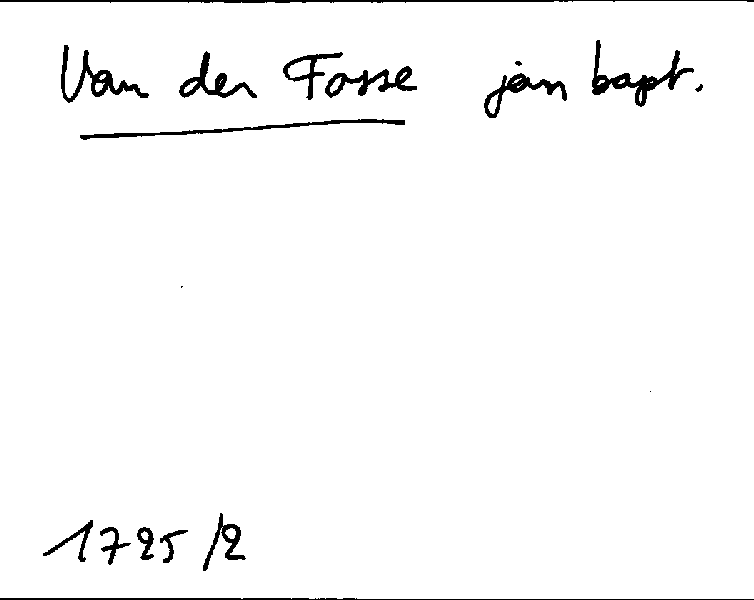 Van der Fosse jan bapt.
1725/2